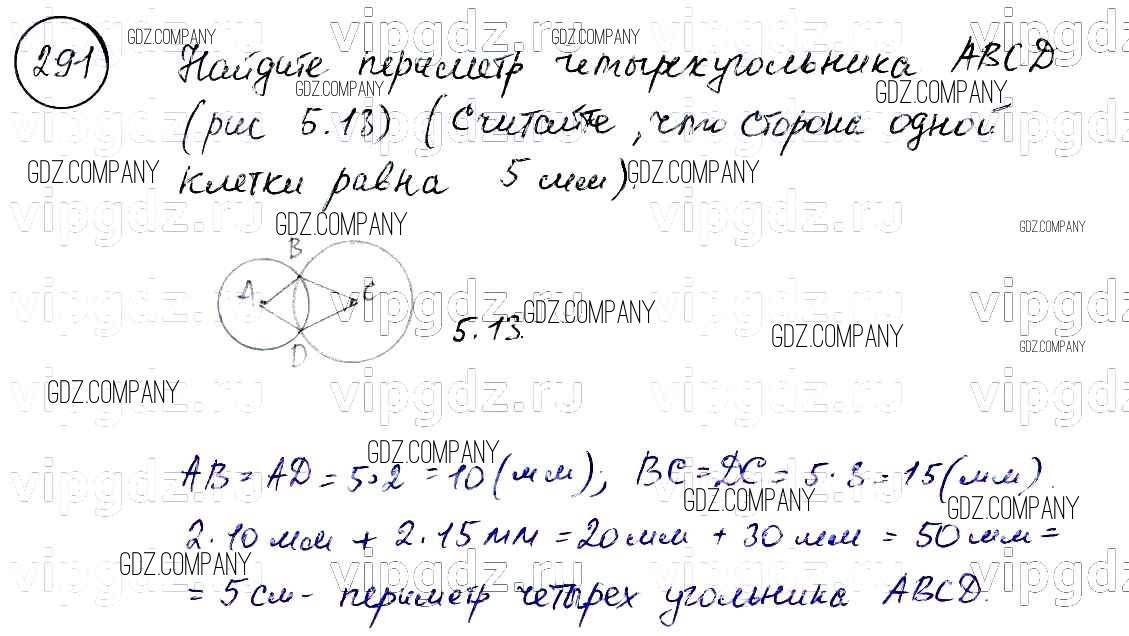 291
Найдите периметр четырехугольника ABCD
(рис 5.13) (Считайте, что сторона одной
клетки равна 5 мм).
B
A
C
D
5.13.
AB = AD = 5·2 = 10 (мм); BC = DC = 5·3 = 15 (мм).
2·10 мм + 2·15 мм = 20 мм + 30 мм = 50 мм =
= 5 см - периметр четырех угольника ABCD.
GDZ.COMPANY
vipgdz.ru